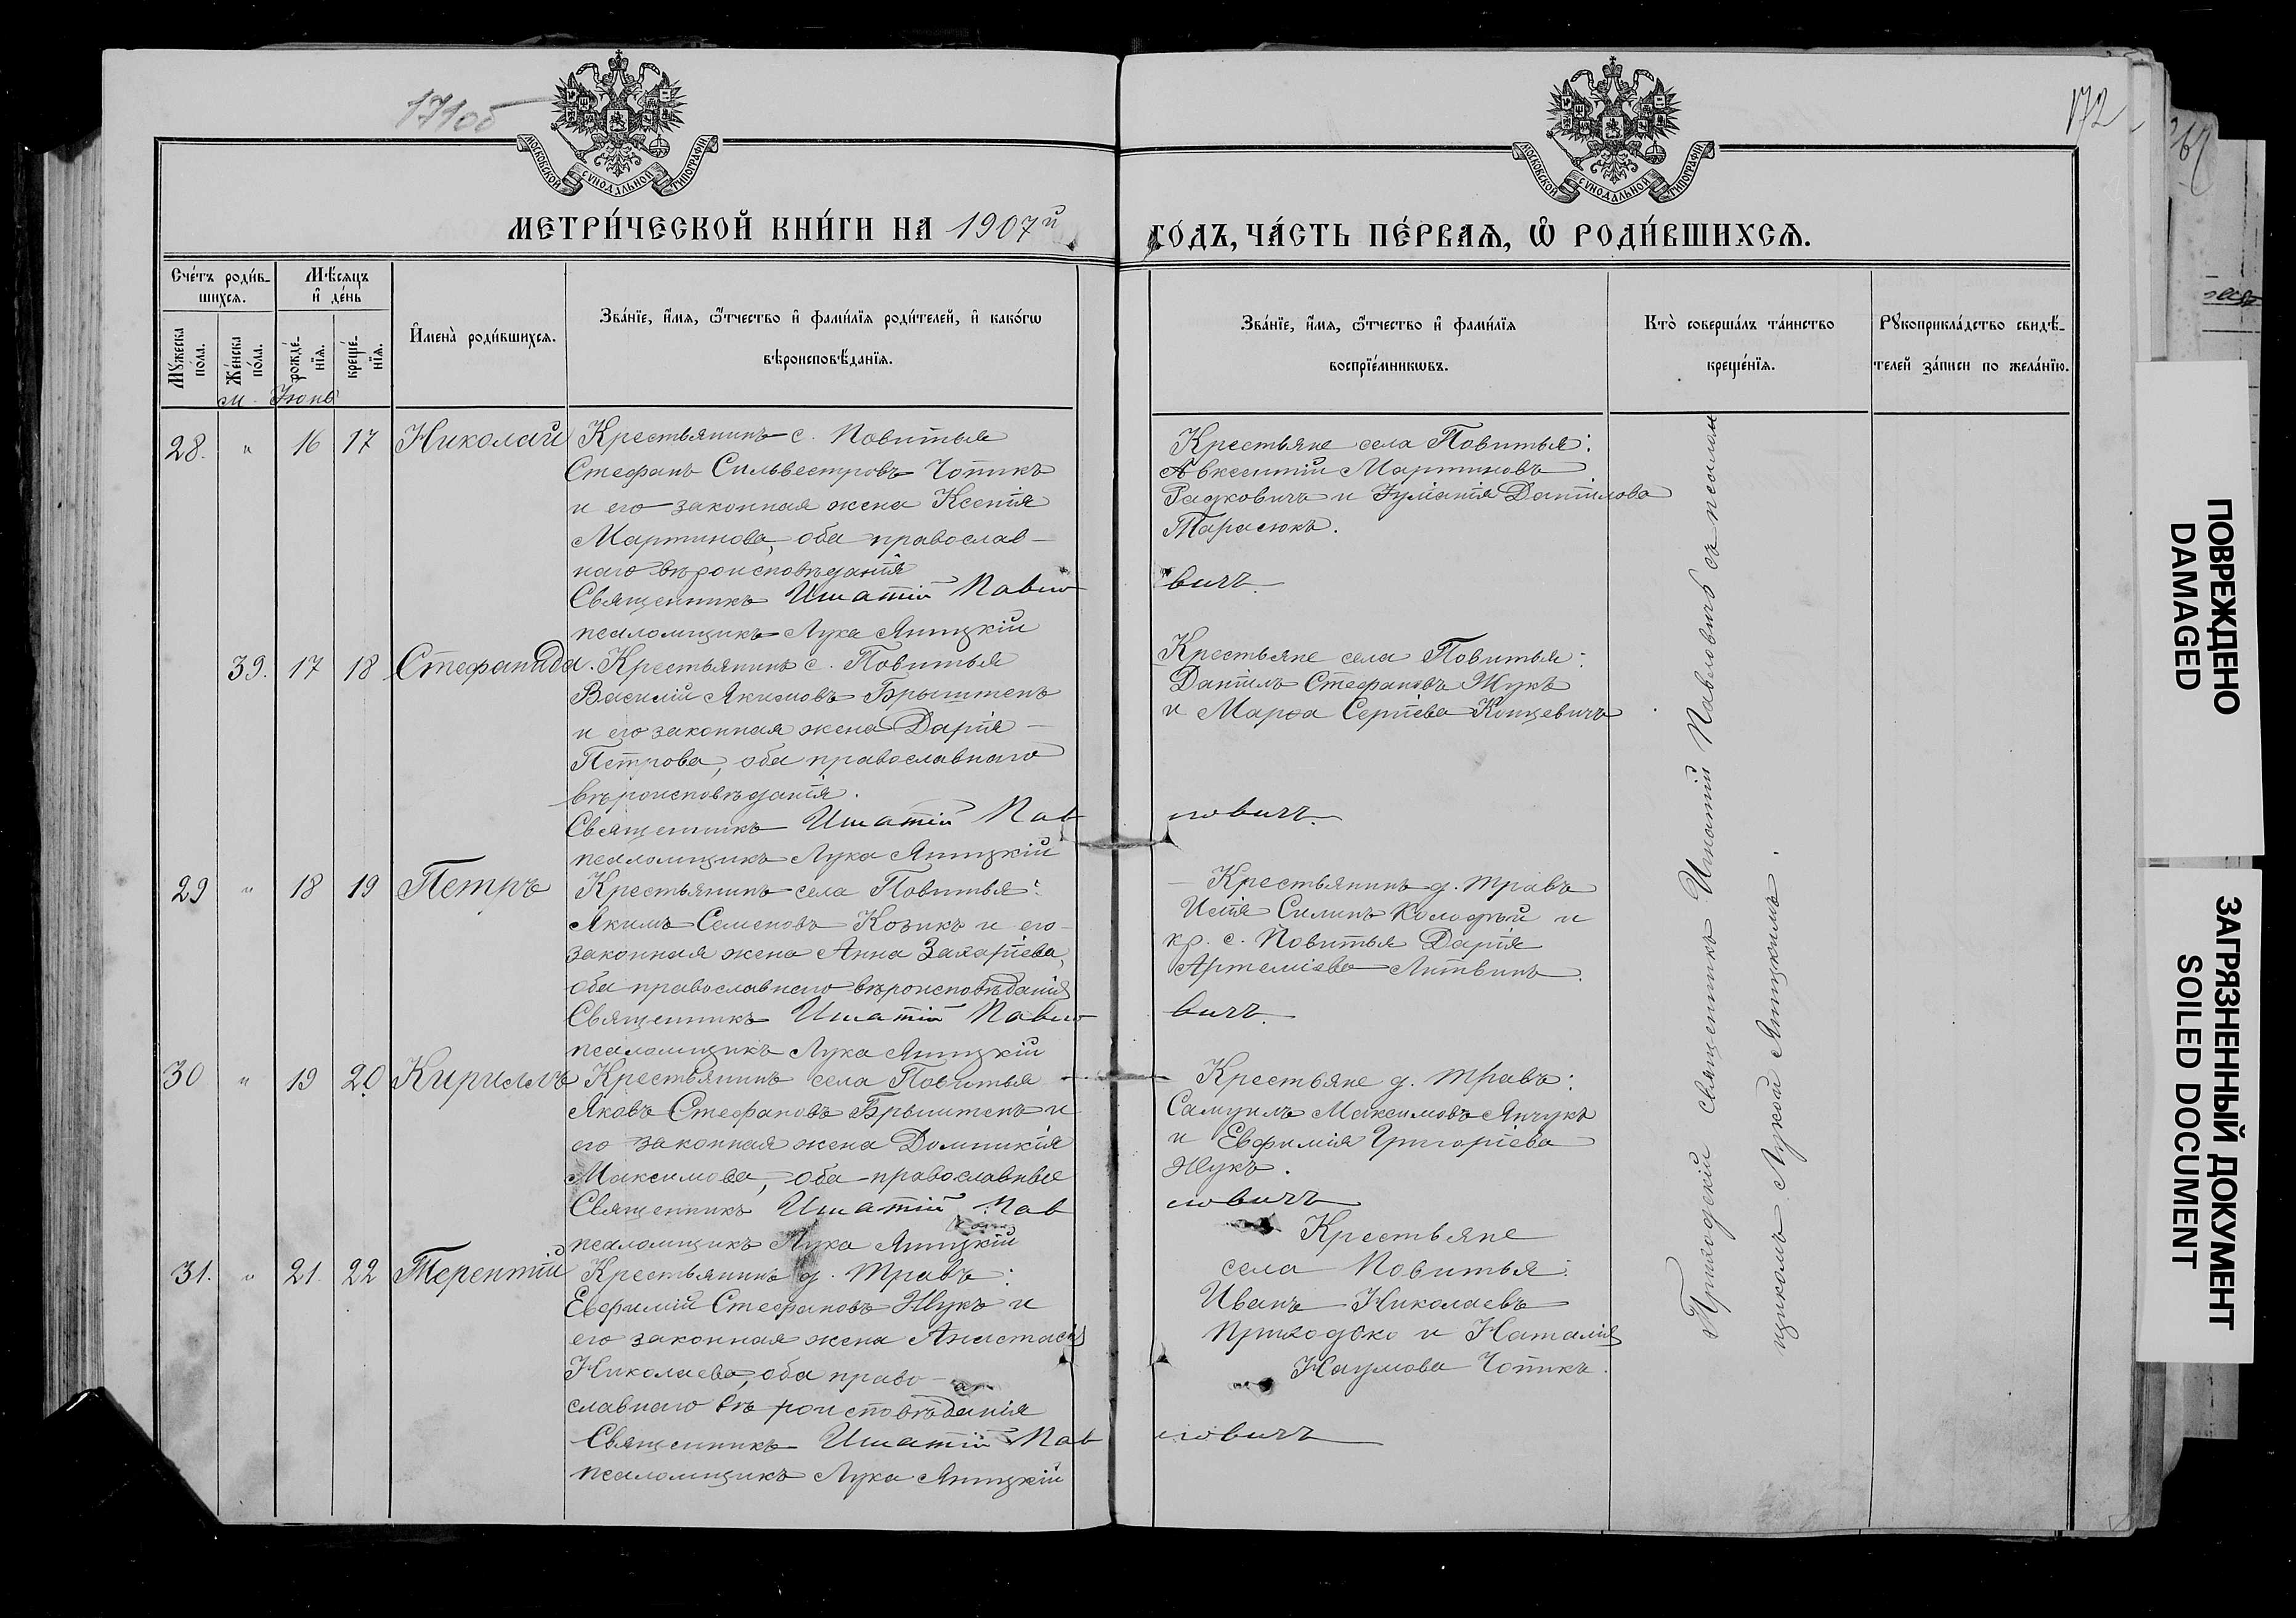 171об
172
МОСКОВСКОЙ СѴНОДАЛЬНОЙ ТИПОГРАФІИ
МОСКОВСКОЙ СѴНОДАЛЬНОЙ ТИПОГРАФІИ
МЕТРИ́ЧЕСКОЙ КНИ́ГИ НА 1907й
ГО́ДЪ, ЧА́СТЬ ПЕ́РВАѦ, Ѽ РОДИ́ВШИХСѦ.
Сче́тъ роди́в-
шихсѧ.
Мѣ́сяцъ
и҆ де́нь
Мꙋ́жеска по́ла.
Же́нска по́ла.
рожде́-нїѧ.
креще́-нїѧ.
И҆мена̀ роди́вшихсѧ.
Зва́нїе, и҆́мѧ, ѻ҆́тчество и҆ фами́лїѧ роди́телей, и҆ како́гѡ
вѣроисповѣ́данїѧ.
Зва́нїе, и҆́мѧ, ѻ҆́тчество и҆ фами́лїѧ
воспрїе́мникѡвъ.
Кто̀ соверша́лъ та́инство
креще́нїѧ.
Рꙋкоприкла́дство свидѣ́-
телей за́писи по жела́нїю.
м. Іюнь
28. " 16 17 Николай
Крестьянинъ с. Повитья
Стефанъ Сильвестровъ Чопикъ
и его законная жена Ксенія
Мартинова, оба православ-
наго вѣроисповѣданія
Священникъ Игнатій Павло
псаломщикъ Лука Япицкій
Крестьяне села Повитья:
Авксентій Мартиновъ
Радковичъ и Іуліанія Даніилова
Тарасюкъ.
вичъ.
39. 17 18 Стефанида.
Крестьянинъ с. Повитья
Василій Якимовъ Брыштенъ
и его законная жена Дарія
Петрова, оба православнаго
вѣроисповѣданія.
Священникъ Игнатій Пав
псаломщикъ Лука Япицкій
Крестьяне села Повитья:
Даніилъ Стефановъ Жукъ
и Марѳа Сергіева Концевичъ
ловичъ.
29 " 18 19 Петръ
Крестьянинъ села Повитья:
Якимъ Семеновъ Козикъ и его
законная жена Анна Захаріева,
оба православнаго вѣроисповѣданія
Священникъ Игнатій Павло
псаломщикъ Лука Япицкій
Крестьянинъ д. Травъ
Исаія Силинъ Колодѣй и
кр. с. Повитья Дарія
Артеміева Литвинъ.
вичъ.
30 " 19 20 Кириллъ
Крестьянинъ села Повитья
Яковъ Стефановъ Брыштенъ и
его законная жена Домникія
Максимова, оба православные
Священникъ Игнатій Пав
псаломщикъ Лука Япицкій
Крестьяне д. Травъ:
Самуилъ Максимовъ Янчукъ
и Евфимія Григоріева
Жукъ.
ловичъ
31. " 21. 22 Терентій
Крестьянинъ д. Травъ:
Евфимій Стефановъ Жукъ и
его законная жена Анастасія
Николаева, оба право-
славнаго вѣроисповѣданія
Священникъ Игнатій Пав
псаломщикъ Лука Япицкій
Крестьяне
села Повитья:
Иванъ Николаевъ
Приходько и Наталія
Наумова Чопикъ.
ловичъ
Приходскій священникъ Игнатій Павловичъ съ псалом
щикомъ Лукой Япицкимъ.
ПОВРЕЖДЕНО
DAMAGED
ЗАГРЯЗНЕННЫЙ ДОКУМЕНТ
SOILED DOCUMENT